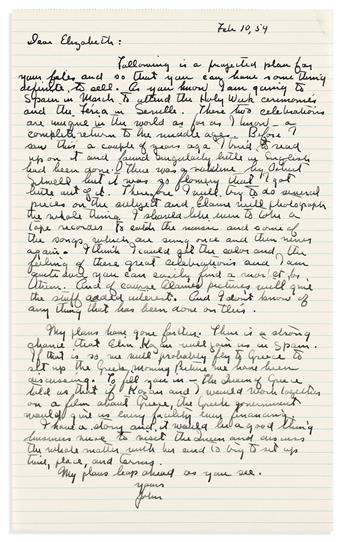 Feb 10, 54
Dear Elizabeth:
Following is a projected plan for
your files and so that you can have something
definite to sell. As you know I am going to
Spain in March to attend the Holy Week ceremonies
and the Feria in Seville. These two celebrations
are unique in the world as far as I know — a
complete return to the middle ages. Before I
saw this a couple of years ago I tried to read
up on it and found singularly little in English
had been done. There was a rendering by
but it was so flowery that I got
little out of it. Therefore I will try to do several
pieces on the subject and Elaine will photograph
the whole thing. I should like even to take a
tape recorder to catch the music and some of
the songs which are sung once and then never
again. I think I could get the color and the
feeling of these great celebrations and I am
quite sure you can easily find a market for
them. And of course Elaine's pictures will give
the stuff added interest. And I don't know of
any thing that has been done on this.
My plans have gone further. There is a strong
chance that Kazan will join us in Spain.
If that is so we will probably fly to Greece to
set up the Greek moving Picture we have been
discussing. To fill you in — the Queen of Greece
told us that if Kazan and I would work together
on a film about Greece, the Greek government
would give us every facility even financing.
I have a story and it would be a good thing
business wise to visit the Queen and discuss
the whole matter with her and to try to set up
time, place, and terms.
My plans leap ahead as you see.
yours
John